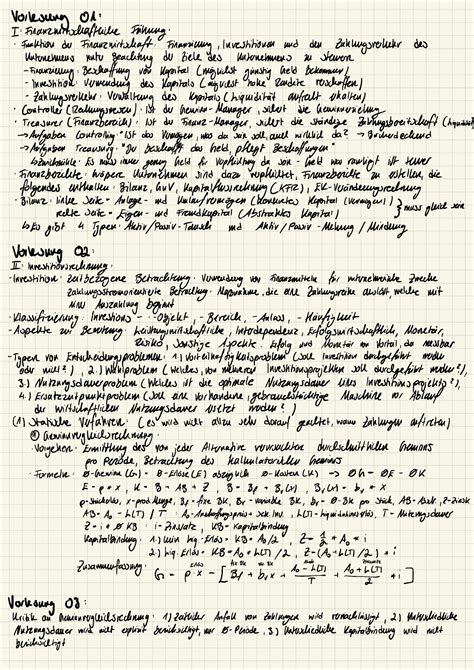 Vorlesung 01:
I. Finanzwirtschaftliche Führung
· Funktion der Finanzwirtschaft: Finanzierung, Investitionen und den Zahlungsverkehr des
Unternehmens unter Beachtung der Ziele des Unternehmens zu steuern
- Finanzierung: Beschaffung von Kapital (möglichst günstig Geld bekommen)
- Investition: Verwendung des Kapitals (möglichst hohe Rendite verschaffen)
- Zahlungsverkehr: Verwaltung des Kapitals (Liquidität aufrecht erhalten)
· Controller (Rechnungswesen): ist der Gewinn-Manager, sichert die Gewinnerzielung
· Treasurer (Finanzbereich): ist der Finanz-Manager, sichert die ständige Zahlungsbereitschaft (Liquidität)
→ Aufgaben Controlling: "Ist das Vermögen, was da sein soll, auch wirklich da? →
→ Aufgaben Treasuring: "Du beschaffst das Geld, pflegst Beziehungen"
↳ Es muss immer genug Geld zur Verfügung da sein - Geld was rumliegt ist teuer
· Finanzberichte: größere Unternehmen sind dazu verpflichtet, Finanzberichte zu erstellen, die
folgendes enthalten: Bilanz, GuV, Kapitalflussrechnung (KFR), EK-Veränderungsrechnung
· Bilanz: linke Seite = Anlage- und Umlaufvermögen (konkretes Kapital (Vermögen)) } muss gleich sein
rechte Seite = Eigen- und Fremdkapital (Abstraktes Kapital)
↳ Es gibt 4 Typen: Aktiv/Passiv-Tausch und Aktiv/Passiv-Mehrung/Minderung
Vorlesung 02:
II. Investitionsrechnung
· Investition: Zeitbezogene Betrachtung: Verwendung von Finanzmitteln für unternehmerische Zwecke
Zahlungsstromorientierte Betrachtung: Maßnahme, die eine Zahlungsreihe auslöst, welche mit
einer Auszahlung beginnt
· Klassifizierung: Investitions- -Objekt, -Bereich, -Anlass, -Häufigkeit
· Aspekte zur Beratung: Leistungswirtschaftliche, Interdependenz, Erfolgswirtschaftlich, Monetär,
Risiko, sonstige Aspekte. Erfolg und Monetär von Vorteil, da messbar
· Typen von Entscheidungsproblemen: 1.) Vorteilhaftigkeitsproblem (soll Investition durchgeführt werden
oder nicht?), 2.) Wahlproblem (Welches, von mehreren Investitionsprojekten soll durchgeführt werden?),
3.) Nutzungsdauerproblem (Welches ist die optimale Nutzungsdauer eines Investitionsprojekts?),
4.) Ersatzzeitpunktproblem (Soll eine vorhandene, gebrauchstüchtige Maschine vor Ablauf
der wirtschaftlichen Nutzungsdauer ersetzt werden?)
(1) Statische Verfahren: (es wird nicht allzu sehr darauf geachtet, wann Zahlungen auftreten)
Gewinnvergleichsrechnung:
· Vorgehen: Ermittlung des von jeder Alternative verursachten durchschnittlichen Gewinns
pro Periode, Betrachtung des kalkulatorischen Gewinns
· Formeln: Ø-Gewinn (G) = Ø-Erlöse (E) abzüglich Ø-Kosten (K) → ØG = ØE - ØK
E = p * x, K = B + AB + Z, B = Bf + Bv(x), Bv(x) = bv * x
p = Stückerlös, x = prod. Menge, Bf = fixe BK, Bv = variable BK, bv = Ø-BK pro Stück, AB = Abschr., Z = Zinsen
AB = A₀ - L(T) / T A₀ = Anschaffungspreis, L(T) = Liquidationserlös, T = Nutzungsdauer
Z = i * Ø KB i = Zinssatz, KB = Kapitalbindung
Kapitalbindung: 1.) kein liq. Erlös: KB = A₀ / 2, Z = 1/2 * A₀ * i
2.) liq. Erlös = KB = A₀ + L(T) / 2, Z = (A₀ + L(T) / 2) * i
Zusammenfassung: G = p * x - [Bf + bv * x + A₀ - L(T) / T + A₀ + L(T) / 2 * i]
Vorlesung 03:
Kritik an Gewinnvergleichsrechnung: 1.) Zeitlicher Anfall von Zahlungen wird vernachlässigt, 2.) Unterschiedliche
Nutzungsdauer wird nicht explizit berücksichtigt, nur Ø-Periode, 3.) Unterschiedliche Kapitalbindung wird nicht
berücksichtigt